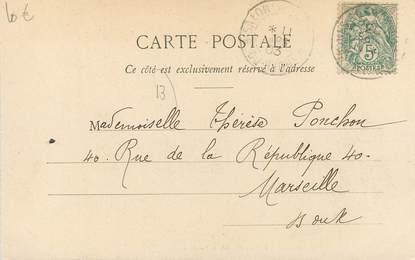 10€
CARTE POSTALE
Ce côté est exclusivement réservé à l'adresse
13
Mademoiselle Thérèse Ponchon
40. Rue de la République 40.
Marseille
5